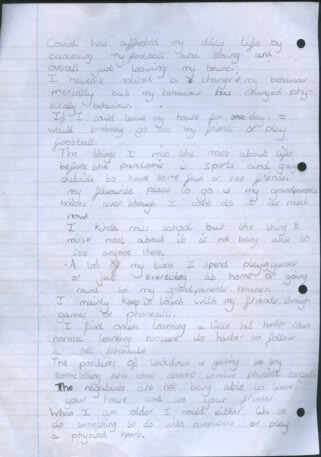 Covid has affected my daily life by
cancelling my football and boxing and
overall just leaving my house.
I haven't noticed a change in my behaviour
mentally but my behaviour has changed phy-
sically behaviour.
If I could leave my house for one day, I
would probably go see my friends or play
football.
The things I miss the most about life
before the pandemic is sports and going
outside to have some fun or see friends.
my favourite place to go is my grandparents
house even though I can't do it as much
now.
I kinda miss school but the thing I
miss most about it is not being able to
see anyone there.
A lot of my time I spend playing games
or just exercising at home or going
round to my grandparents house.
I mainly keep in touch with my friends through
games or phonecalls.
I find online learning a little bit harder than
normal learning because its harder to follow
a set schedule
The positives of lockdown is getting to try
something new that doesn't involve physical
The negatives are not being able to leave
your house and see your friends
When I am older I would either like to
do something to do with computers or play
a physical sports.